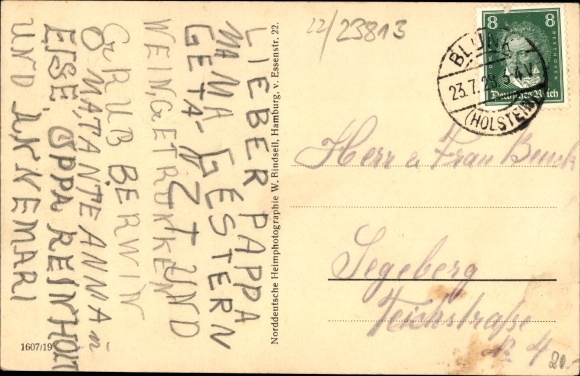 LIEBER PAPPA
MAMA GESTERN
GETA- NZT UND
WEINGETRUNKEN
GRUB BERWIN
OMATANTEANNA
ELSE, OPPA REINHOLT
UND ANNEMARI
1607/19
Norddeutsche Heimphotographie W. Rindseil, Hamburg, v. Essenstr. 22.
22/23813
8 8
Deutsches Reich
BLUNK
23.7.
(HOLSTEIN)
Herr u Frau Bunk
Segeberg
Teichstraße
№ 4
20.-